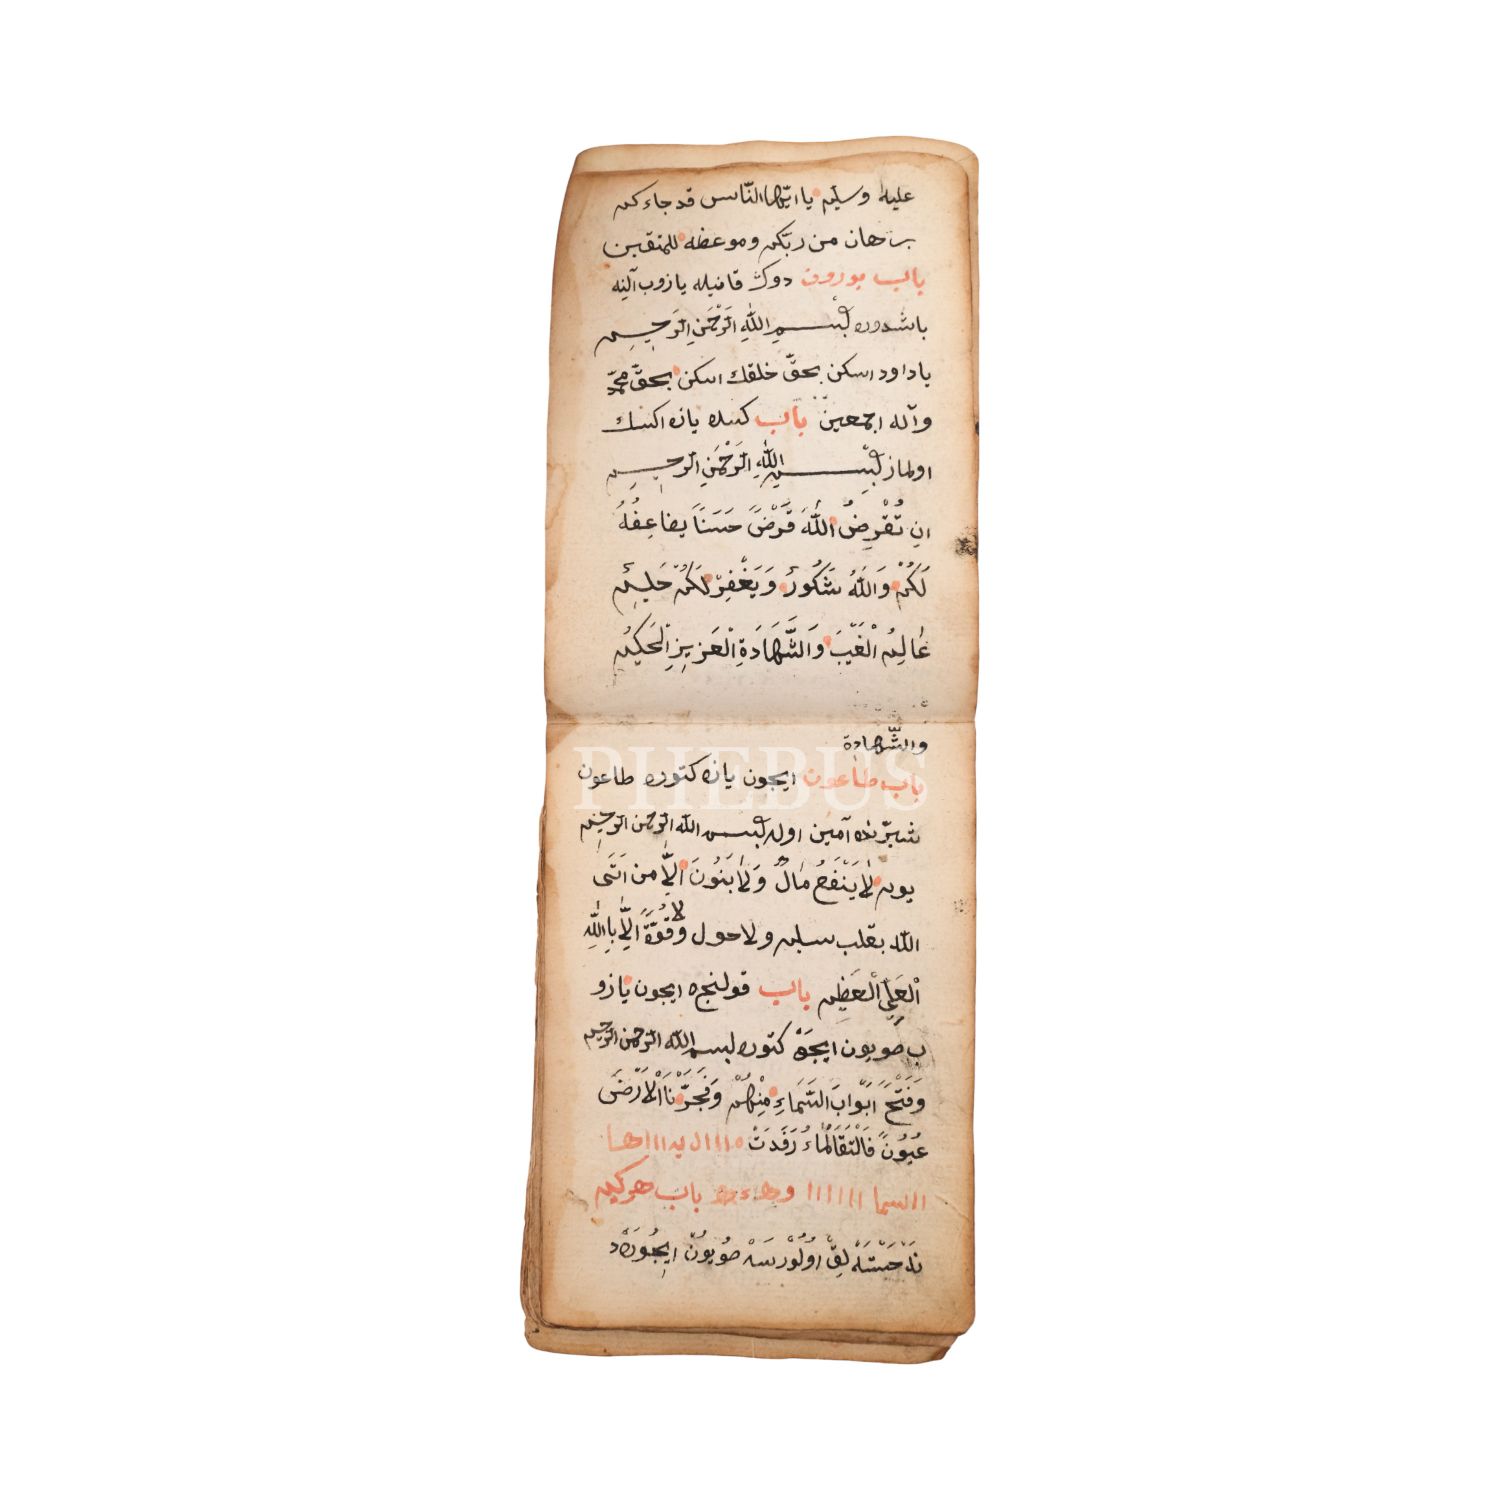 عليه وسلم يا ايها الناس قد جاءكم
برهان من ربكم وموعظه للمتقين
باب بورون دوكش قانيله يازوب آلينه
باشدوره بسم الله الرحمن الرحيم
يا داود اسكن بحق خلقك اسكن بحق محمد
وآله اجمعين باب كسه يازه اكسك
اولماز بسم الله الرحمن الرحيم
ان تُقْرِضُ اللّٰهَ قَرْضَ حَسَنَاً يضاعِفُهُ
لَكُمْ وَاللّٰهُ شَكُورٌ وَيَغْفِرْ لَكُمْ حَلِيمٌ
عَالِمُ الْغَيْبَ وَالشَّهَادَةِ الْعَزِيزِ الْحَكِيمُ
والشّهادة
PHEBUS
باب طاعون ايچون يازه كتوره طاعون
شرّنده آمين اوله بسم الله الرحمن الرحيم
يوم لَا يَنْفَعُ مَالٌ وَلَا بَنُونَ الَّا من اَتَى
الله بقلب سليم ولا حول ولا قُوَّةَ الَّا بِاللّٰهِ
الْعَلِي الْعَظِيم باب قولنجه ايچون يازو
ب صويون ايچه كتوره بسم الله الرحمن الرحيم
وَفَتَحْ اَبْوَابَ السَّمَاءِ مِنْهُمْ وَفَجَّرْنَا الْاَرْضَ
عُيُونً فَالْتَقَالْمَاءُ رَفَدَتْ
باب هر كيم
نَدْ حَسْتَهْ لِقْ اوُلوُرسَهْ صُويوُنْ ايچوُرَهْ د